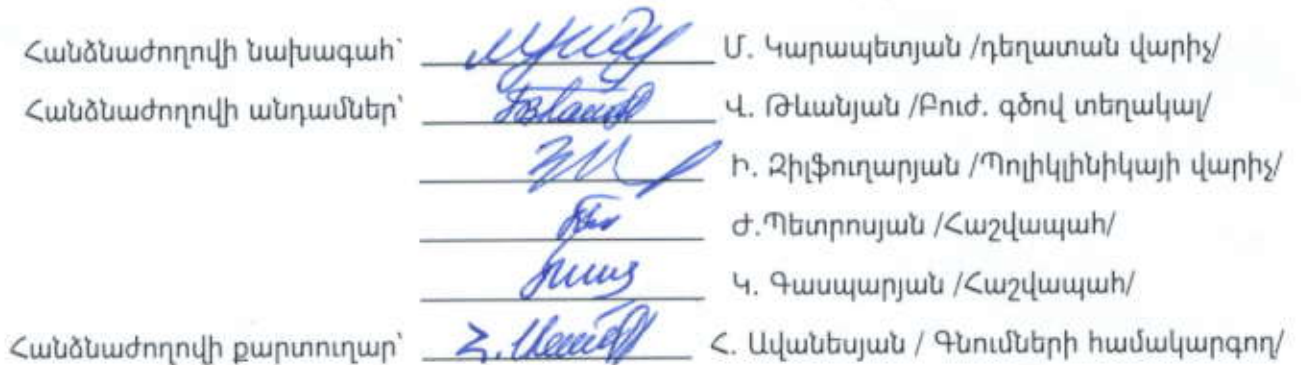 Հանձնաժողովի նախագահ՝ Մ. Կարապետյան /դեղատան վարիչ/
Հանձնաժողովի անդամներ՝ Վ. Թևանյան /Բուժ. գծով տեղակալ/
Ի. Զիլֆուղարյան /Պոլիկլինիկայի վարիչ/
Ժ.Պետրոսյան /Հաշվապահ/
Կ. Գասպարյան /Հաշվապահ/
Հանձնաժողովի քարտուղար՝ Հ. Ավանեսյան / Գնումների համակարգող/